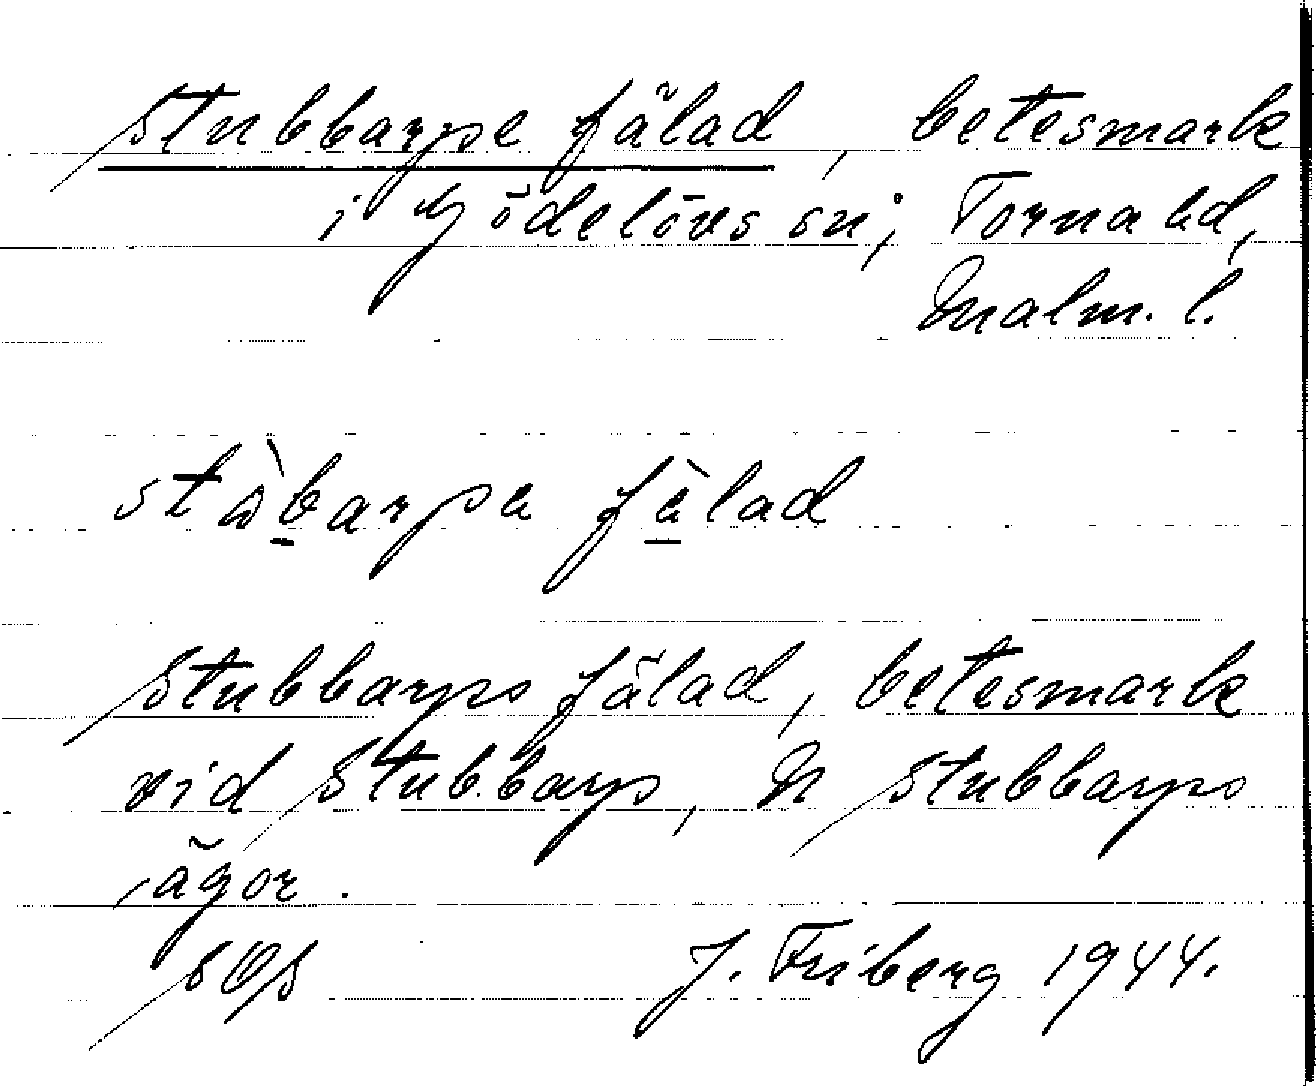 Stubbarps fälad, betesmark
i Gödelövs sn, Torna hd,
Malm. l.
stòbarpa fàlad
Stubbarps fälad, betesmark
vid Stubbarp, N Stubbarps
ägor.
J. Friberg 1944.